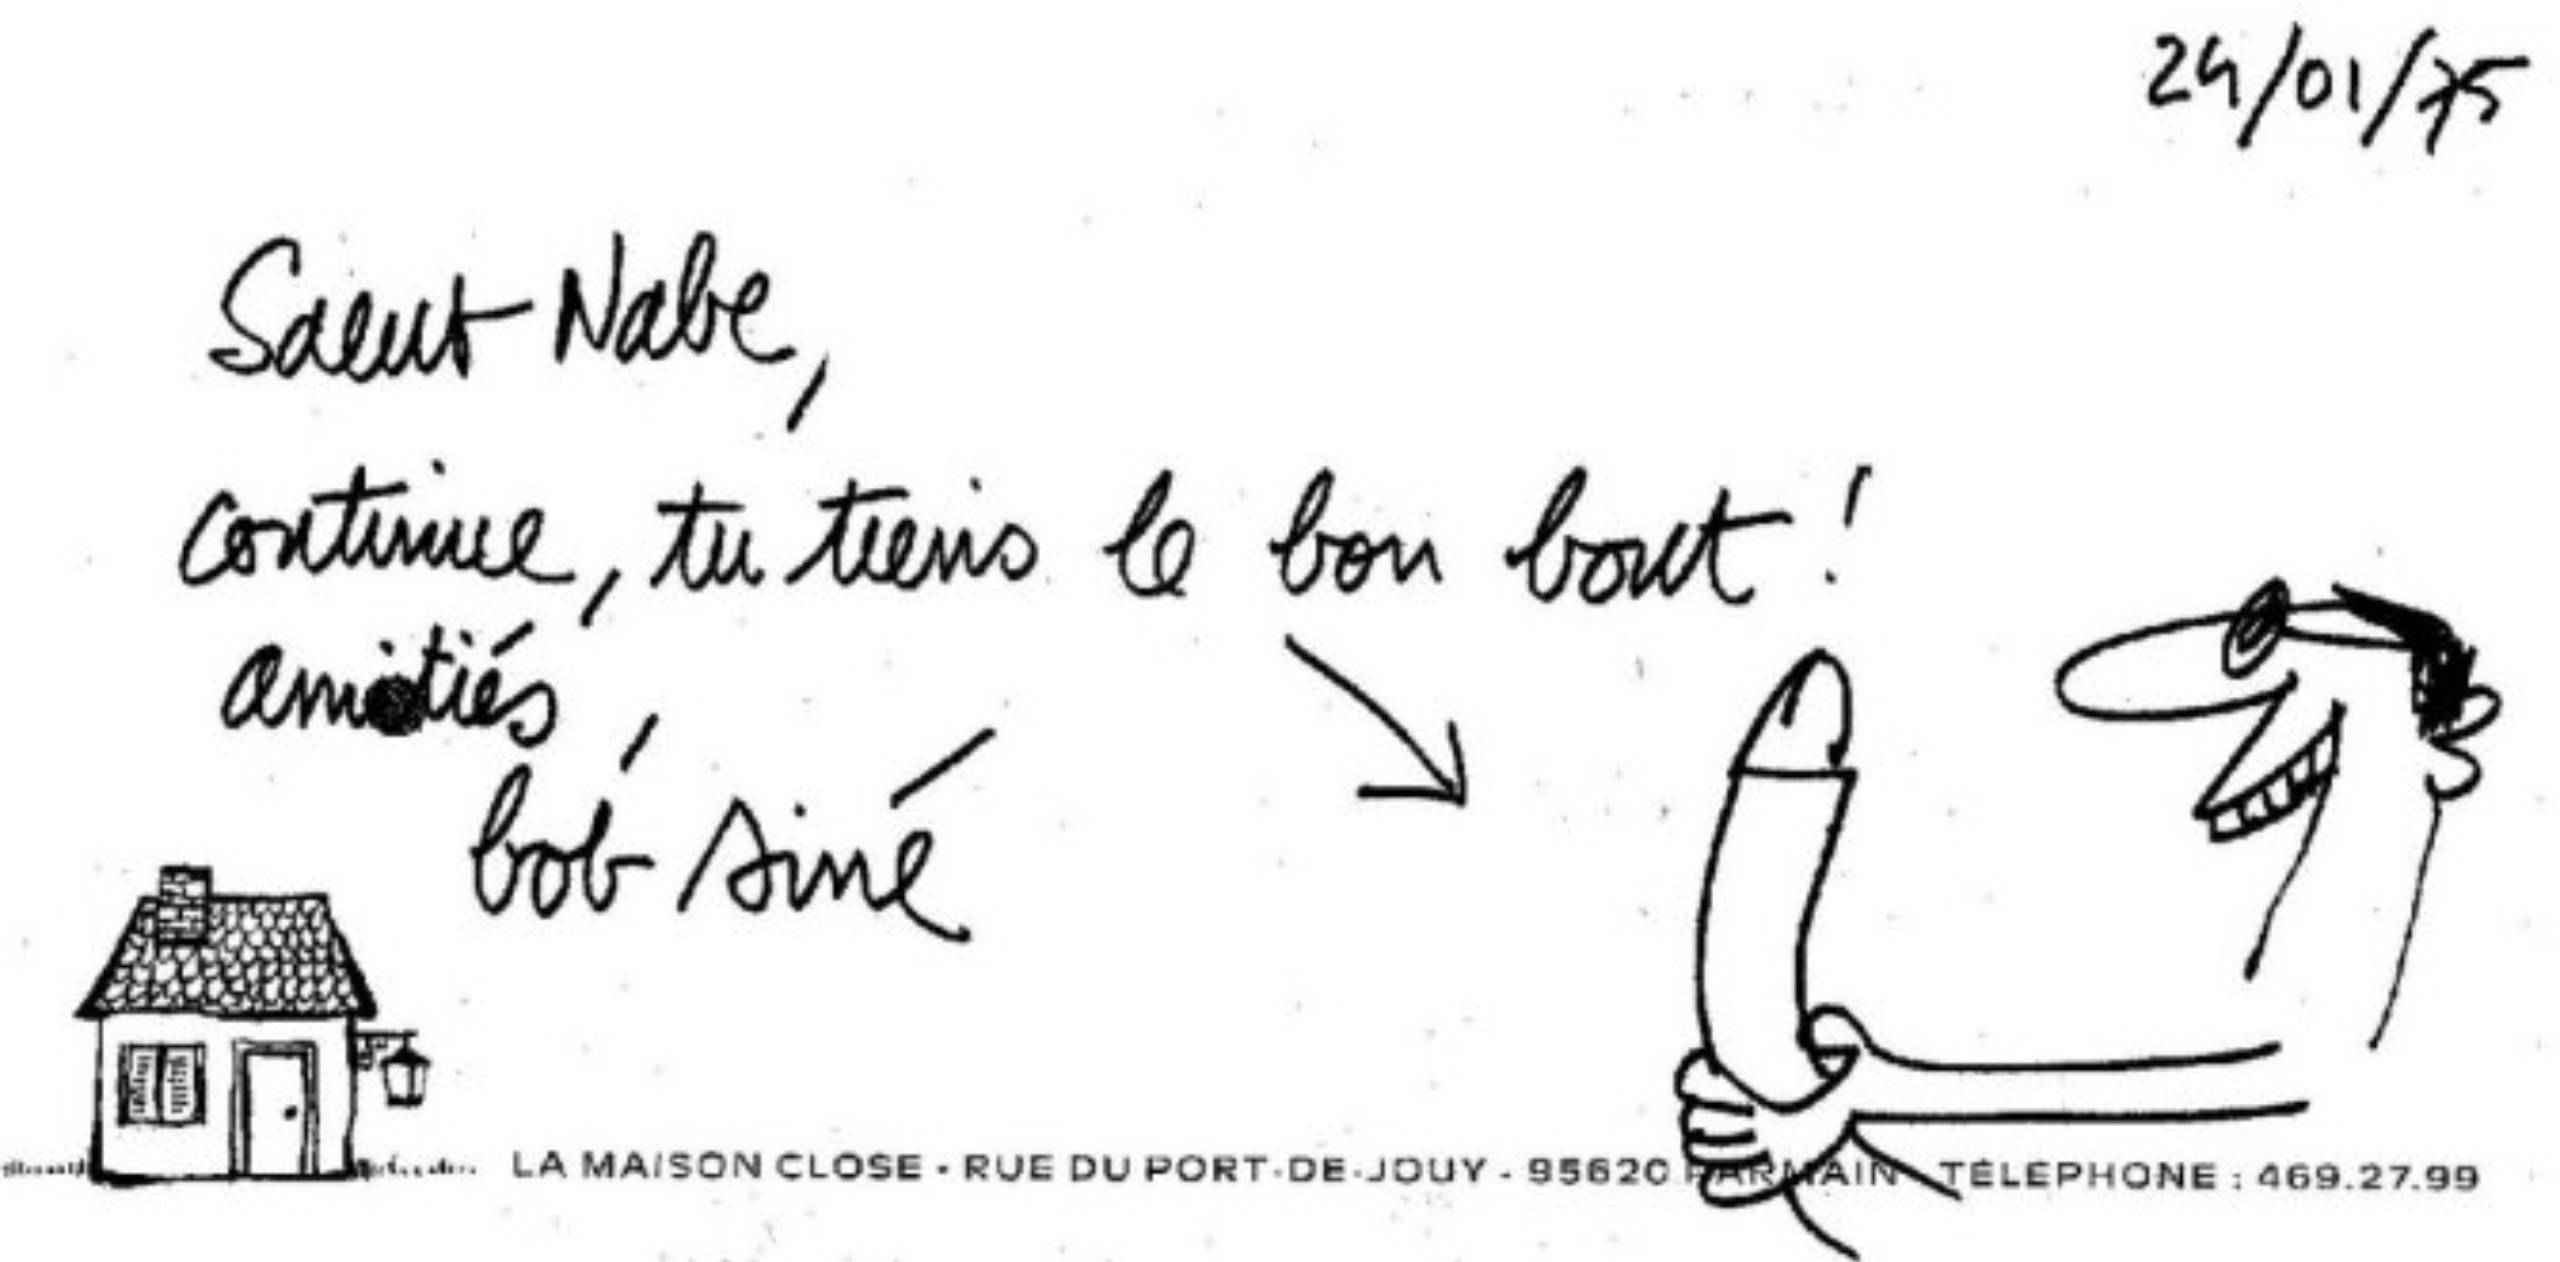 24/01/75
Salut Nabe,
continue, tu tiens le bon bout !
amitiés,
bob siné
LA MAISON CLOSE - RUE DU PORT-DE-JOUY - 95620 PARMAIN - TÉLÉPHONE : 469.27.99